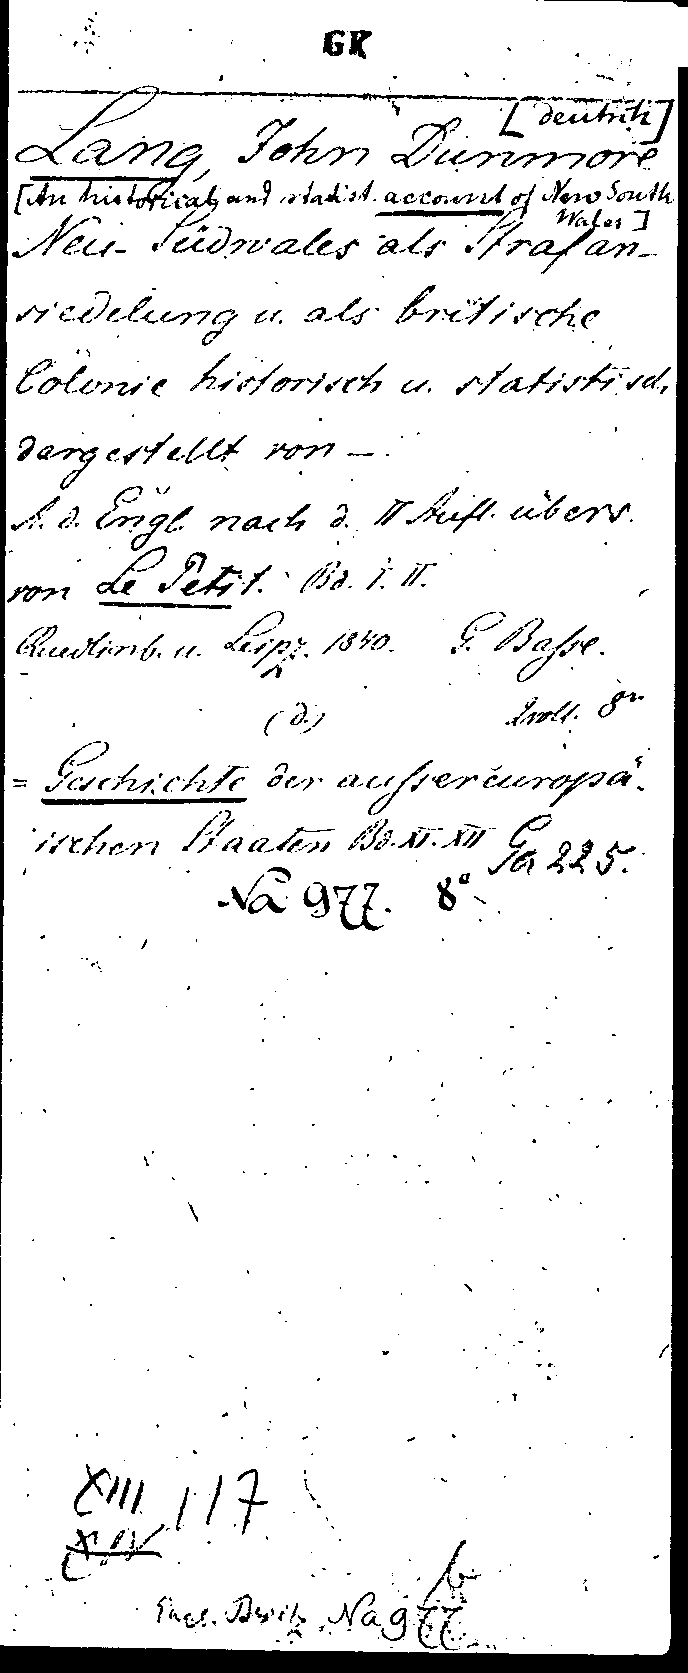 GK
[deutsch]
Lang, John Dunmore
[An historical and statist. account of New South
Wales]
Neu-Südwales als Strafan-
siedelung u. als britische
Colonie historisch u. statistisch
dargestellt von —.
A. d. Engl. nach d. II Aufl. übers.
von Le Petit. Bd. I. II.
Quedlinb. u. Leipz. 1840. G. Basse.
(d.) 2 voll. 8°
= Geschichte der aussereuropä-
ischen Staaten Bd. XI. XII
Ga 225.
Na 977. 8°
XIII 117
XIV
b
Na 977